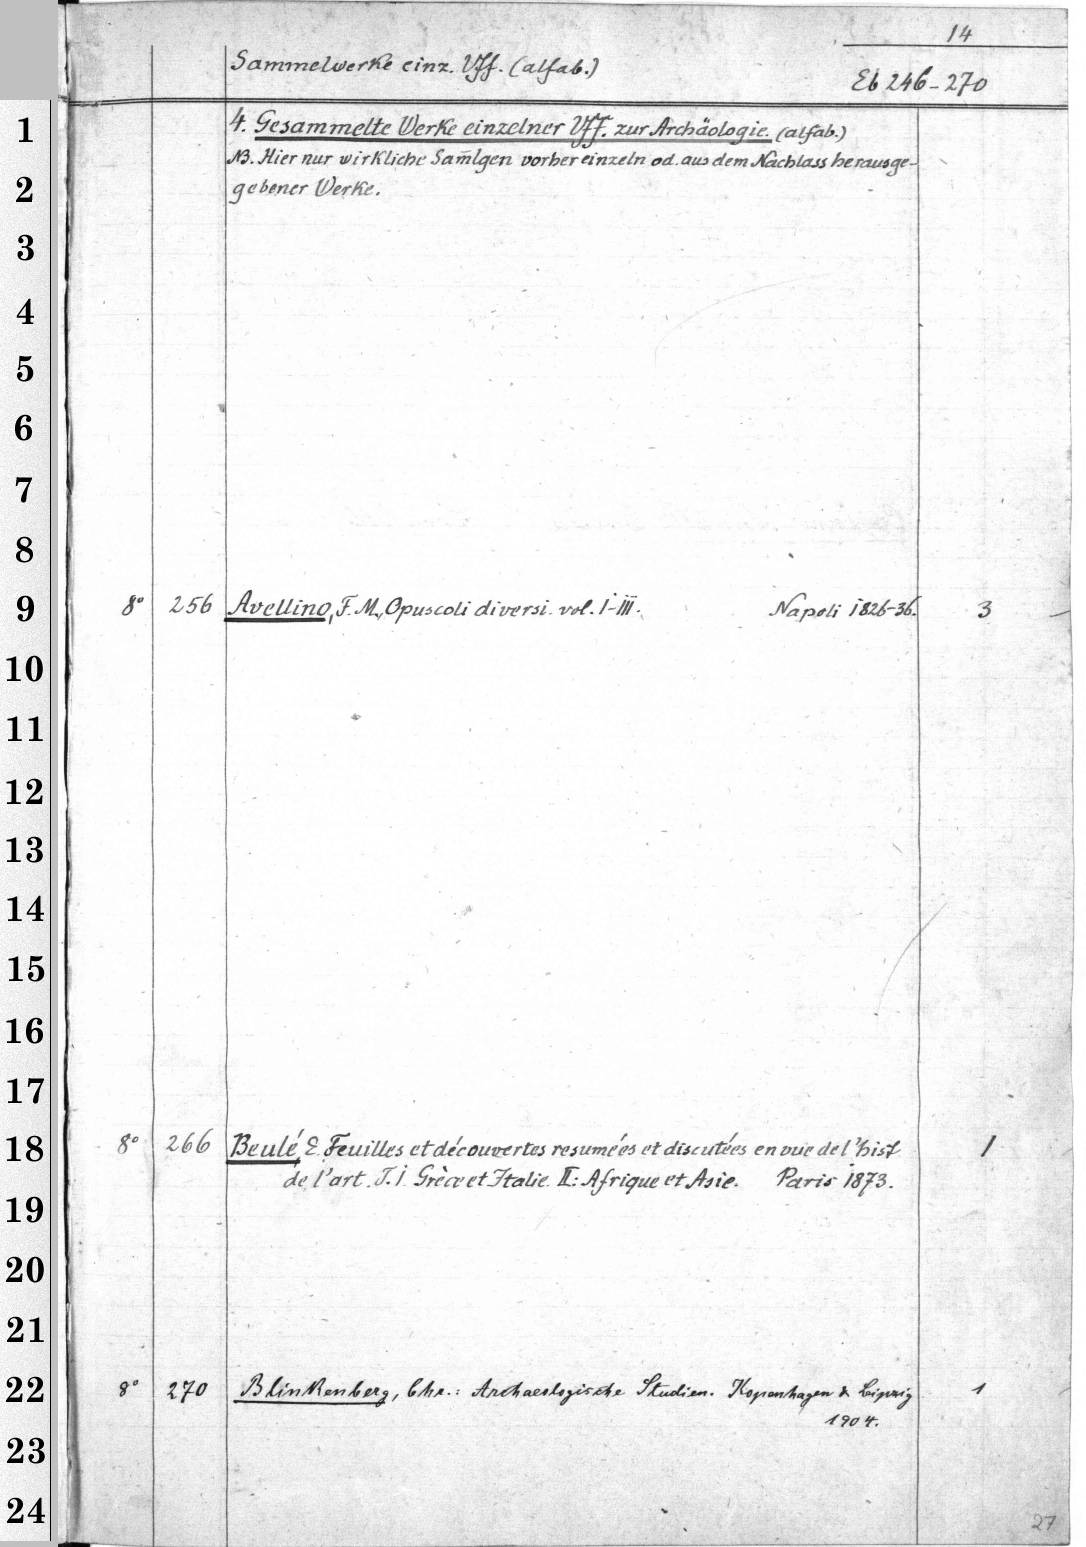 14
Sammelwerke einz. Vff. (alfab.)
Eb 246-270
4. Gesammelte Werke einzelner Vff. zur Archäologie. (alfab.)
NB. Hier nur wirkliche Sam̄lgen vorher einzeln od. aus dem Nachlass herausge-
gebener Werke.
8° 256 Avellino, F. M., Opuscoli diversi. vol. I-III. Napoli 1826-36. 3
8° 266 Beulé, E. Feuilles et découvertes resumées et discutées en vue de l'hist
de l'art. T. I. Grèce et Italie. II: Afrique et Asie. Paris 1873. 1
8° 270 Blinkenberg, Chr.: Archaeologische Studien. Kopenhagen & Leipzig 1
1904.
27
1
2
3
4
5
6
7
8
9
10
11
12
13
14
15
16
17
18
19
20
21
22
23
24